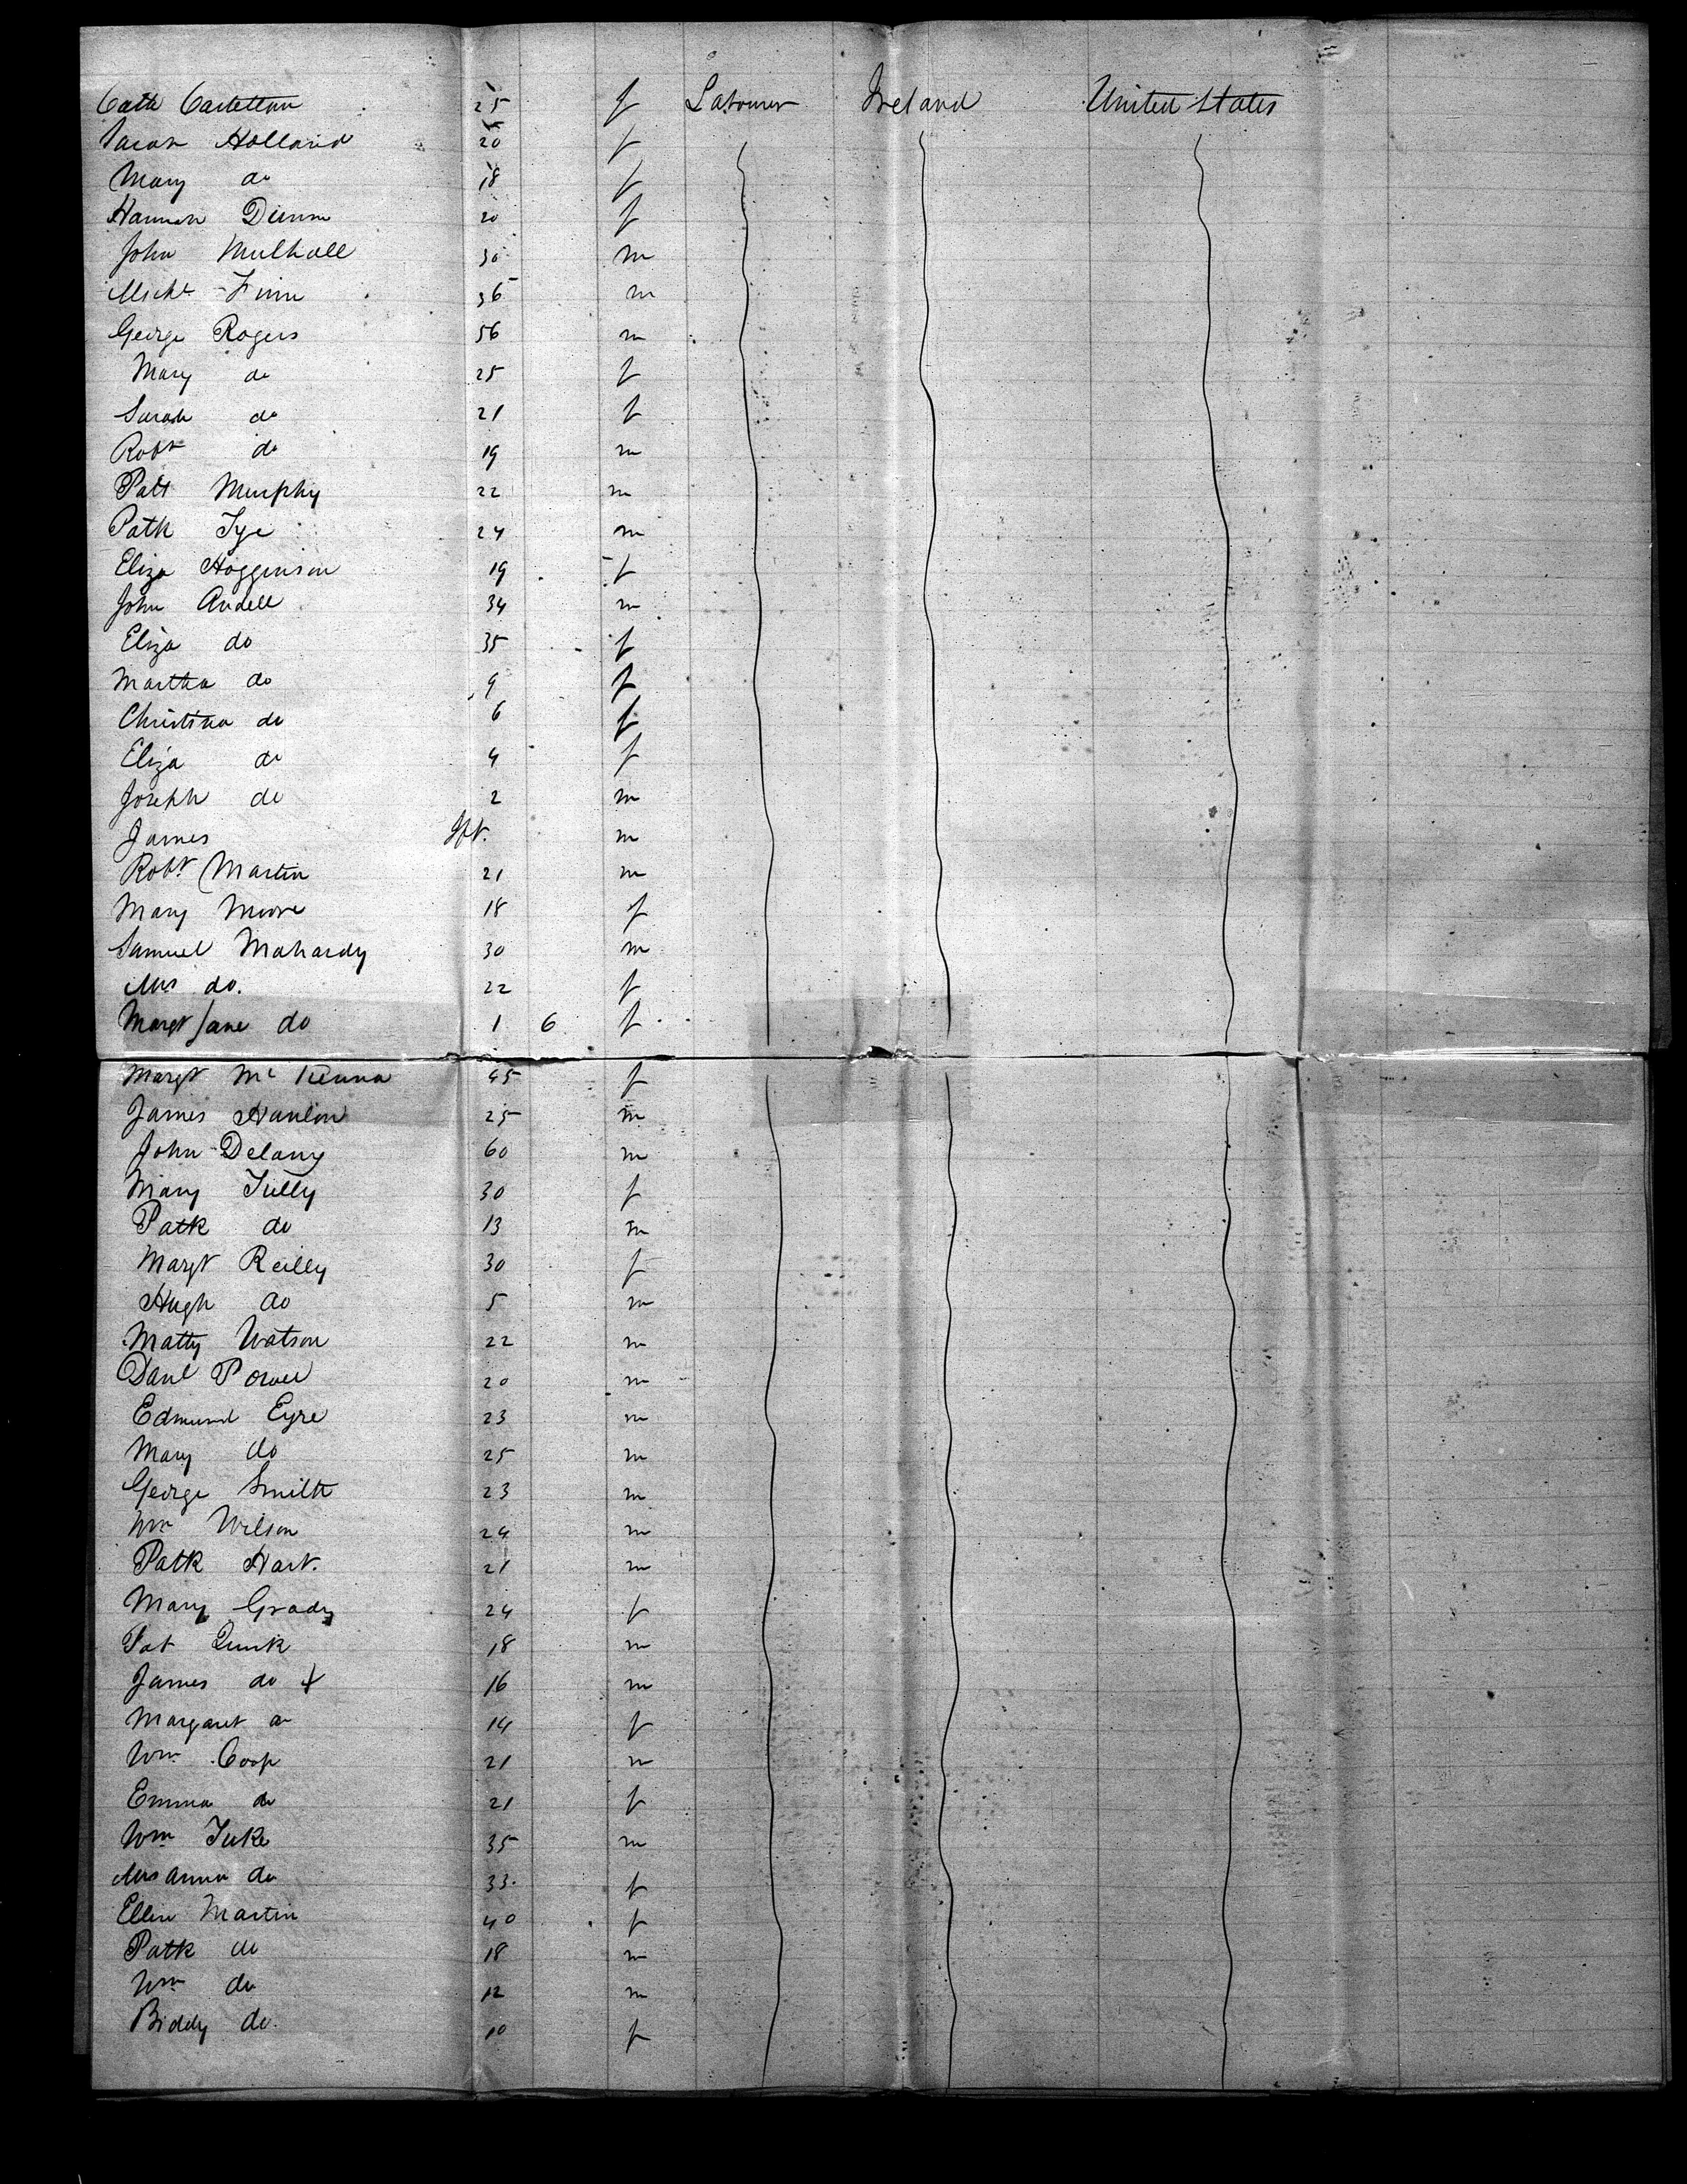 Cath Carletton 25 f Labourer Ireland United States
Sarah Holland 20 f
Mary do 18 f
Hannah Dunn 20 f
John Mulhall 30 m
Michl Finn 36 m
George Rogers 56 m
Mary do 25 f
Sarah do 21 f
Robt do 19 m
Patt Murphy 22 m
Patk Tye 24 m
Eliza Hogginson 19 f
John Ardell 34 m
Eliza do 35 f
Martha do 9 f
Christina do 6 f
Eliza do 4 f
Joseph do 2 m
James Inft. m
Robt Martin 21 m
Mary Moore 18 f
Samuel Mahardy 30 m
Mrs do. 22 f
Margt Jane do 1 6 f
Margt McKenna 45 f
James Hanlon 25 m
John Delany 60 m
Mary Tully 30 f
Patk do 13 m
Margt Reilly 30 f
Hugh do 5 m
Matty Watson 22 m
Danl Power 20 m
Edmund Eyre 23 m
Mary do 25 m
George Smith 23 m
Wm Wilson 24 m
Patk Hart. 21 m
Mary Grady 24 f
Pat Quirk 18 m
James do + 16 m
Margaret do 14 f
Wm Coop 21 m
Emma do 21 f
Wm Tuke 35 m
Mrs Anna do 33. f
Ellen Martin 40 f
Patk do 18 m
Wm do 12 m
Biddy do. 10 f